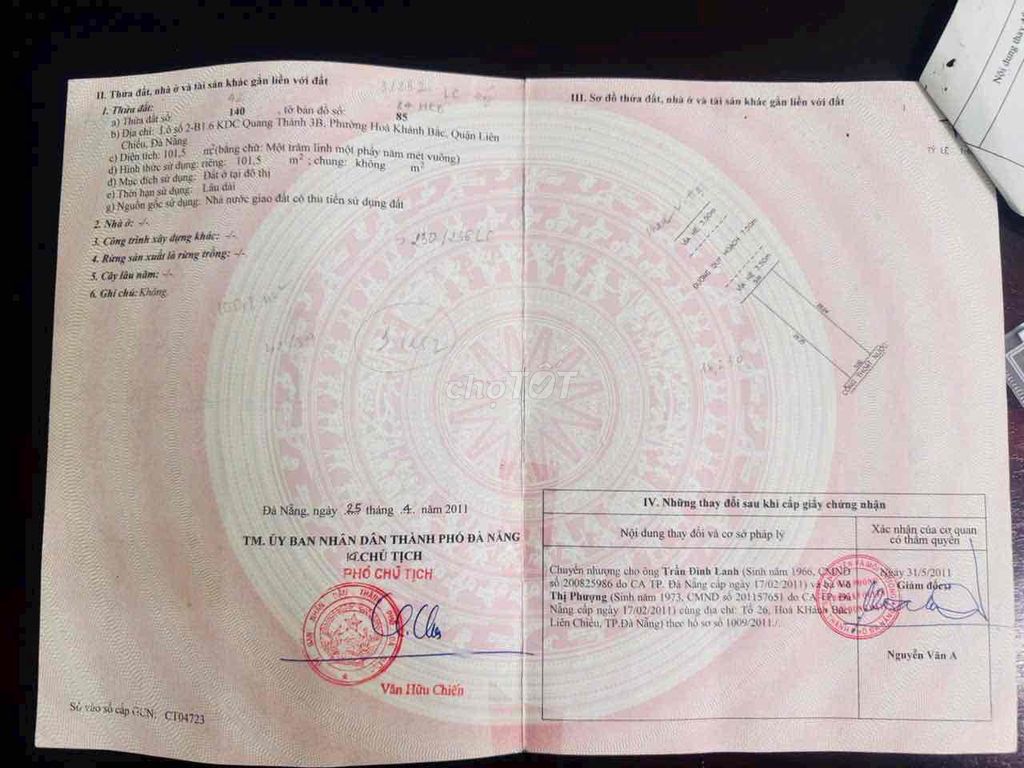 II. Thửa đất, nhà ở và tài sản khác gắn liền với đất
1. Thửa đất:
a) Thửa đất số: 140 , tờ bản đồ số: 85
b) Địa chỉ: Lô số 2-B1.6 KDC Quang Thành 3B, Phường Hoà Khánh Bắc, Quận Liên
Chiểu, Đà Nẵng
c) Diện tích: 101,5 m² (bằng chữ: Một trăm linh một phẩy năm mét vuông)
d) Hình thức sử dụng: riêng: 101,5 m² ; chung: không m²
đ) Mục đích sử dụng: Đất ở tại đô thị
e) Thời hạn sử dụng: Lâu dài
g) Nguồn gốc sử dụng: Nhà nước giao đất có thu tiền sử dụng đất
2. Nhà ở: -/-
3. Công trình xây dựng khác: -/-
4. Rừng sản xuất là rừng trồng: -/-
5. Cây lâu năm: -/-
6. Ghi chú: Không.
chợTỐT
Đà Nẵng, ngày 25 tháng 4 năm 2011
TM. ỦY BAN NHÂN DÂN THÀNH PHỐ ĐÀ NẴNG
KT. CHỦ TỊCH
PHÓ CHỦ TỊCH
Văn Hữu Chiến
Số vào sổ cấp GCN: CT04723
III. Sơ đồ thửa đất, nhà ở và tài sản khác gắn liền với đất
TỶ LỆ
VỈA HÈ 3.50m
ĐƯỜNG QUY HOẠCH 7.50m
VỈA HÈ 3.50m
CỐNG THOÁT NƯỚC
IV. Những thay đổi sau khi cấp giấy chứng nhận
Nội dung thay đổi và cơ sở pháp lý
Xác nhận của cơ quan
có thẩm quyền
Chuyển nhượng cho ông Trần Đình Lanh (Sinh năm 1966, CMND
số 200825986 do CA TP. Đà Nẵng cấp ngày 17/02/2011) và bà Võ
Thị Phượng (Sinh năm 1973, CMND số 201157651 do CA TP. Đà
Nẵng cấp ngày 17/02/2011) cùng địa chỉ: Tổ 26, Hoà KHánh Bắc,
Liên Chiểu, TP.Đà Nẵng) theo hồ sơ số 1009/2011./.
Ngày 31/5/2011
Giám đốc
Nguyễn Văn A
Nội dung thay đổi